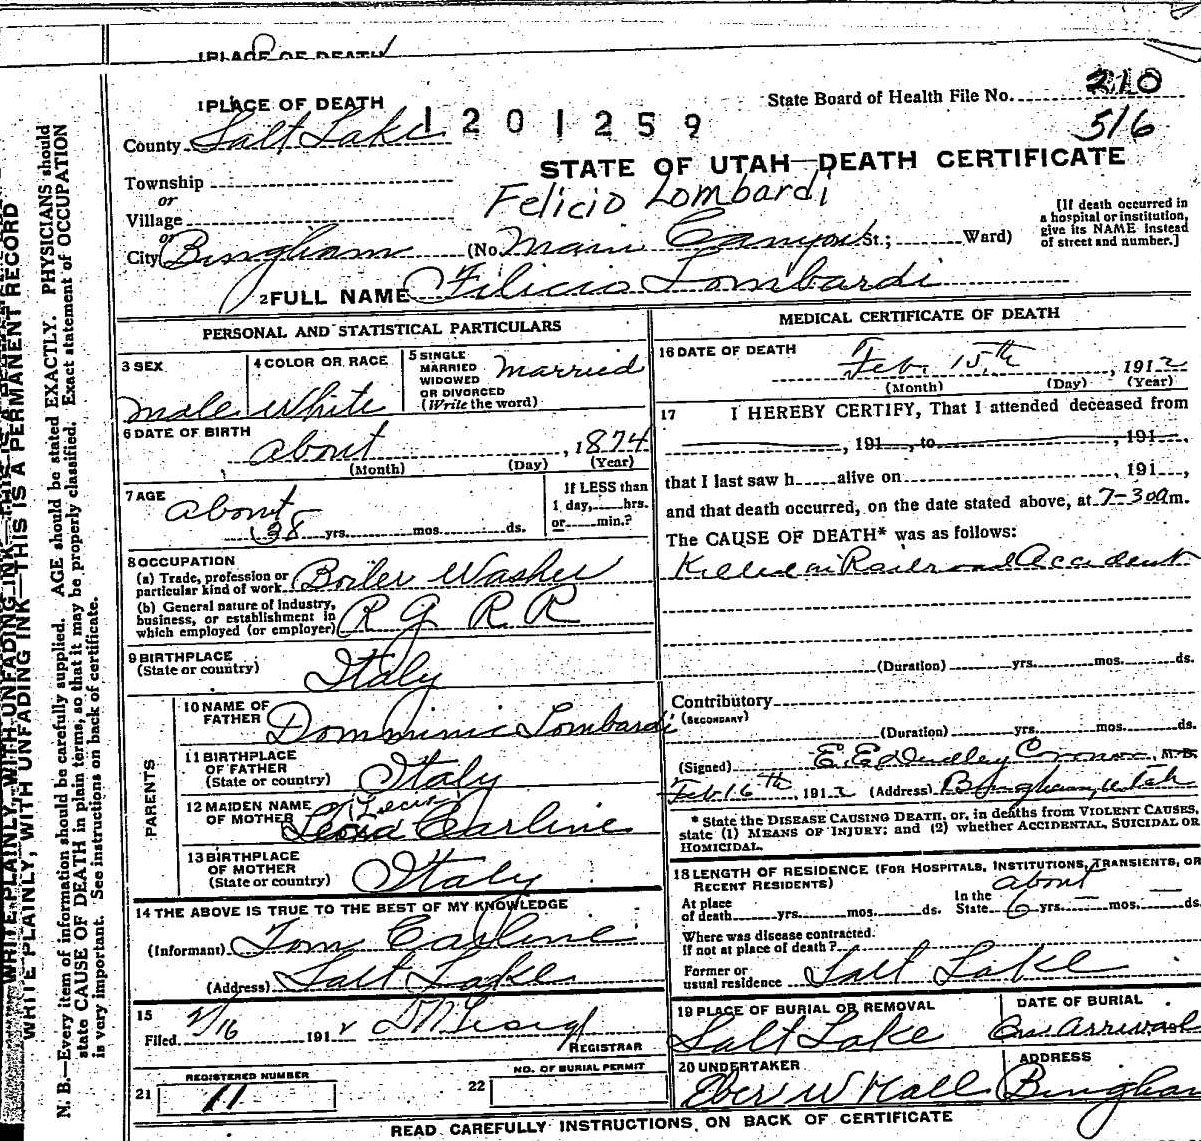 1 PLACE OF DEATH
1 PLACE OF DEATH
State Board of Health File No. 210
516
County Salt Lake
1201259
STATE OF UTAH—DEATH CERTIFICATE
Township
or
Village
or
Felicio Lombardi
[If death occurred in
a hospital or institution,
give its NAME instead
of street and number.]
City Bingham (No. Main Canyon St.; Ward)
2 FULL NAME Filicio Lombardi
PERSONAL AND STATISTICAL PARTICULARS
3 SEX
male
4 COLOR OR RACE
White
5 SINGLE
MARRIED
WIDOWED
OR DIVORCED
(Write the word)
Married
6 DATE OF BIRTH
about , 1874
(Month) (Day) (Year)
7 AGE
about
38 yrs. mos. ds.
If LESS than
1 day, hrs.
or min.?
8 OCCUPATION
(a) Trade, profession or
particular kind of work Boiler Washer
(b) General nature of industry,
business, or establishment in
which employed (or employer) R G R R
9 BIRTHPLACE
(State or country) Italy
PARENTS
10 NAME OF
FATHER Domminic Lombardi
11 BIRTHPLACE
OF FATHER
(State or country) Italy
12 MAIDEN NAME
OF MOTHER Carline
13 BIRTHPLACE
OF MOTHER
(State or country) Italy
14 THE ABOVE IS TRUE TO THE BEST OF MY KNOWLEDGE
(Informant) Tom Carline
(Address) Salt Lake
15
Filed 2/16 1912
REGISTRAR
21 REGISTERED NUMBER
11
22 NO. OF BURIAL PERMIT
MEDICAL CERTIFICATE OF DEATH
16 DATE OF DEATH
Feb. 15th , 1912
(Month) (Day) (Year)
17 I HEREBY CERTIFY, That I attended deceased from
, 191 , to , 191 ,
that I last saw h alive on , 191 ,
and that death occurred, on the date stated above, at 7-30a m.
The CAUSE OF DEATH* was as follows:
Killed in Railroad Accident
(Duration) yrs. mos. ds.
Contributory
(SECONDARY)
(Duration) yrs. mos. ds.
(Signed) E. E. Dudley M. D.
Feb 16th , 1912 (Address) Bingham, Utah
* State the DISEASE CAUSING DEATH, or, in deaths from VIOLENT CAUSES,
state (1) MEANS OF INJURY; and (2) whether ACCIDENTAL, SUICIDAL OR
HOMICIDAL.
18 LENGTH OF RESIDENCE (FOR HOSPITALS, INSTITUTIONS, TRANSIENTS, OR
RECENT RESIDENTS) about
At place
of death yrs. mos. ds.
In the
State 6 yrs. mos. ds.
Where was disease contracted.
if not at place of death?
Former or
usual residence Salt Lake
19 PLACE OF BURIAL OR REMOVAL
Salt Lake
DATE OF BURIAL
On Arrival
20 UNDERTAKER
Eber W Hall
ADDRESS
Bingham
READ CAREFULLY INSTRUCTIONS, ON BACK OF CERTIFICATE
WRITE PLAINLY, WITH UNFADING INK—THIS IS A PERMANENT RECORD
N. B.—Every item of information should be carefully supplied. AGE should be stated EXACTLY. PHYSICIANS should
state CAUSE OF DEATH in plain terms, so that it may be properly classified. Exact statement of OCCUPATION
is very important. See instructions on back of certificate.